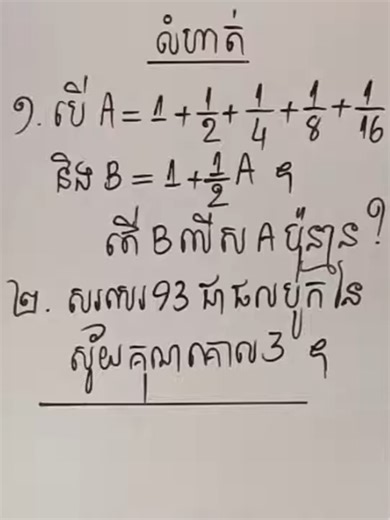 លំហាត់
១. បើ A = 1 + 1/2 + 1/4 + 1/8 + 1/16
និង B = 1 + 1/2 A ។
តើ B លើស A ប៉ុន្មាន?
២. សរសេរ 93 ជាផលបូកនៃ
ស្វ័យគុណគោល 3 ។